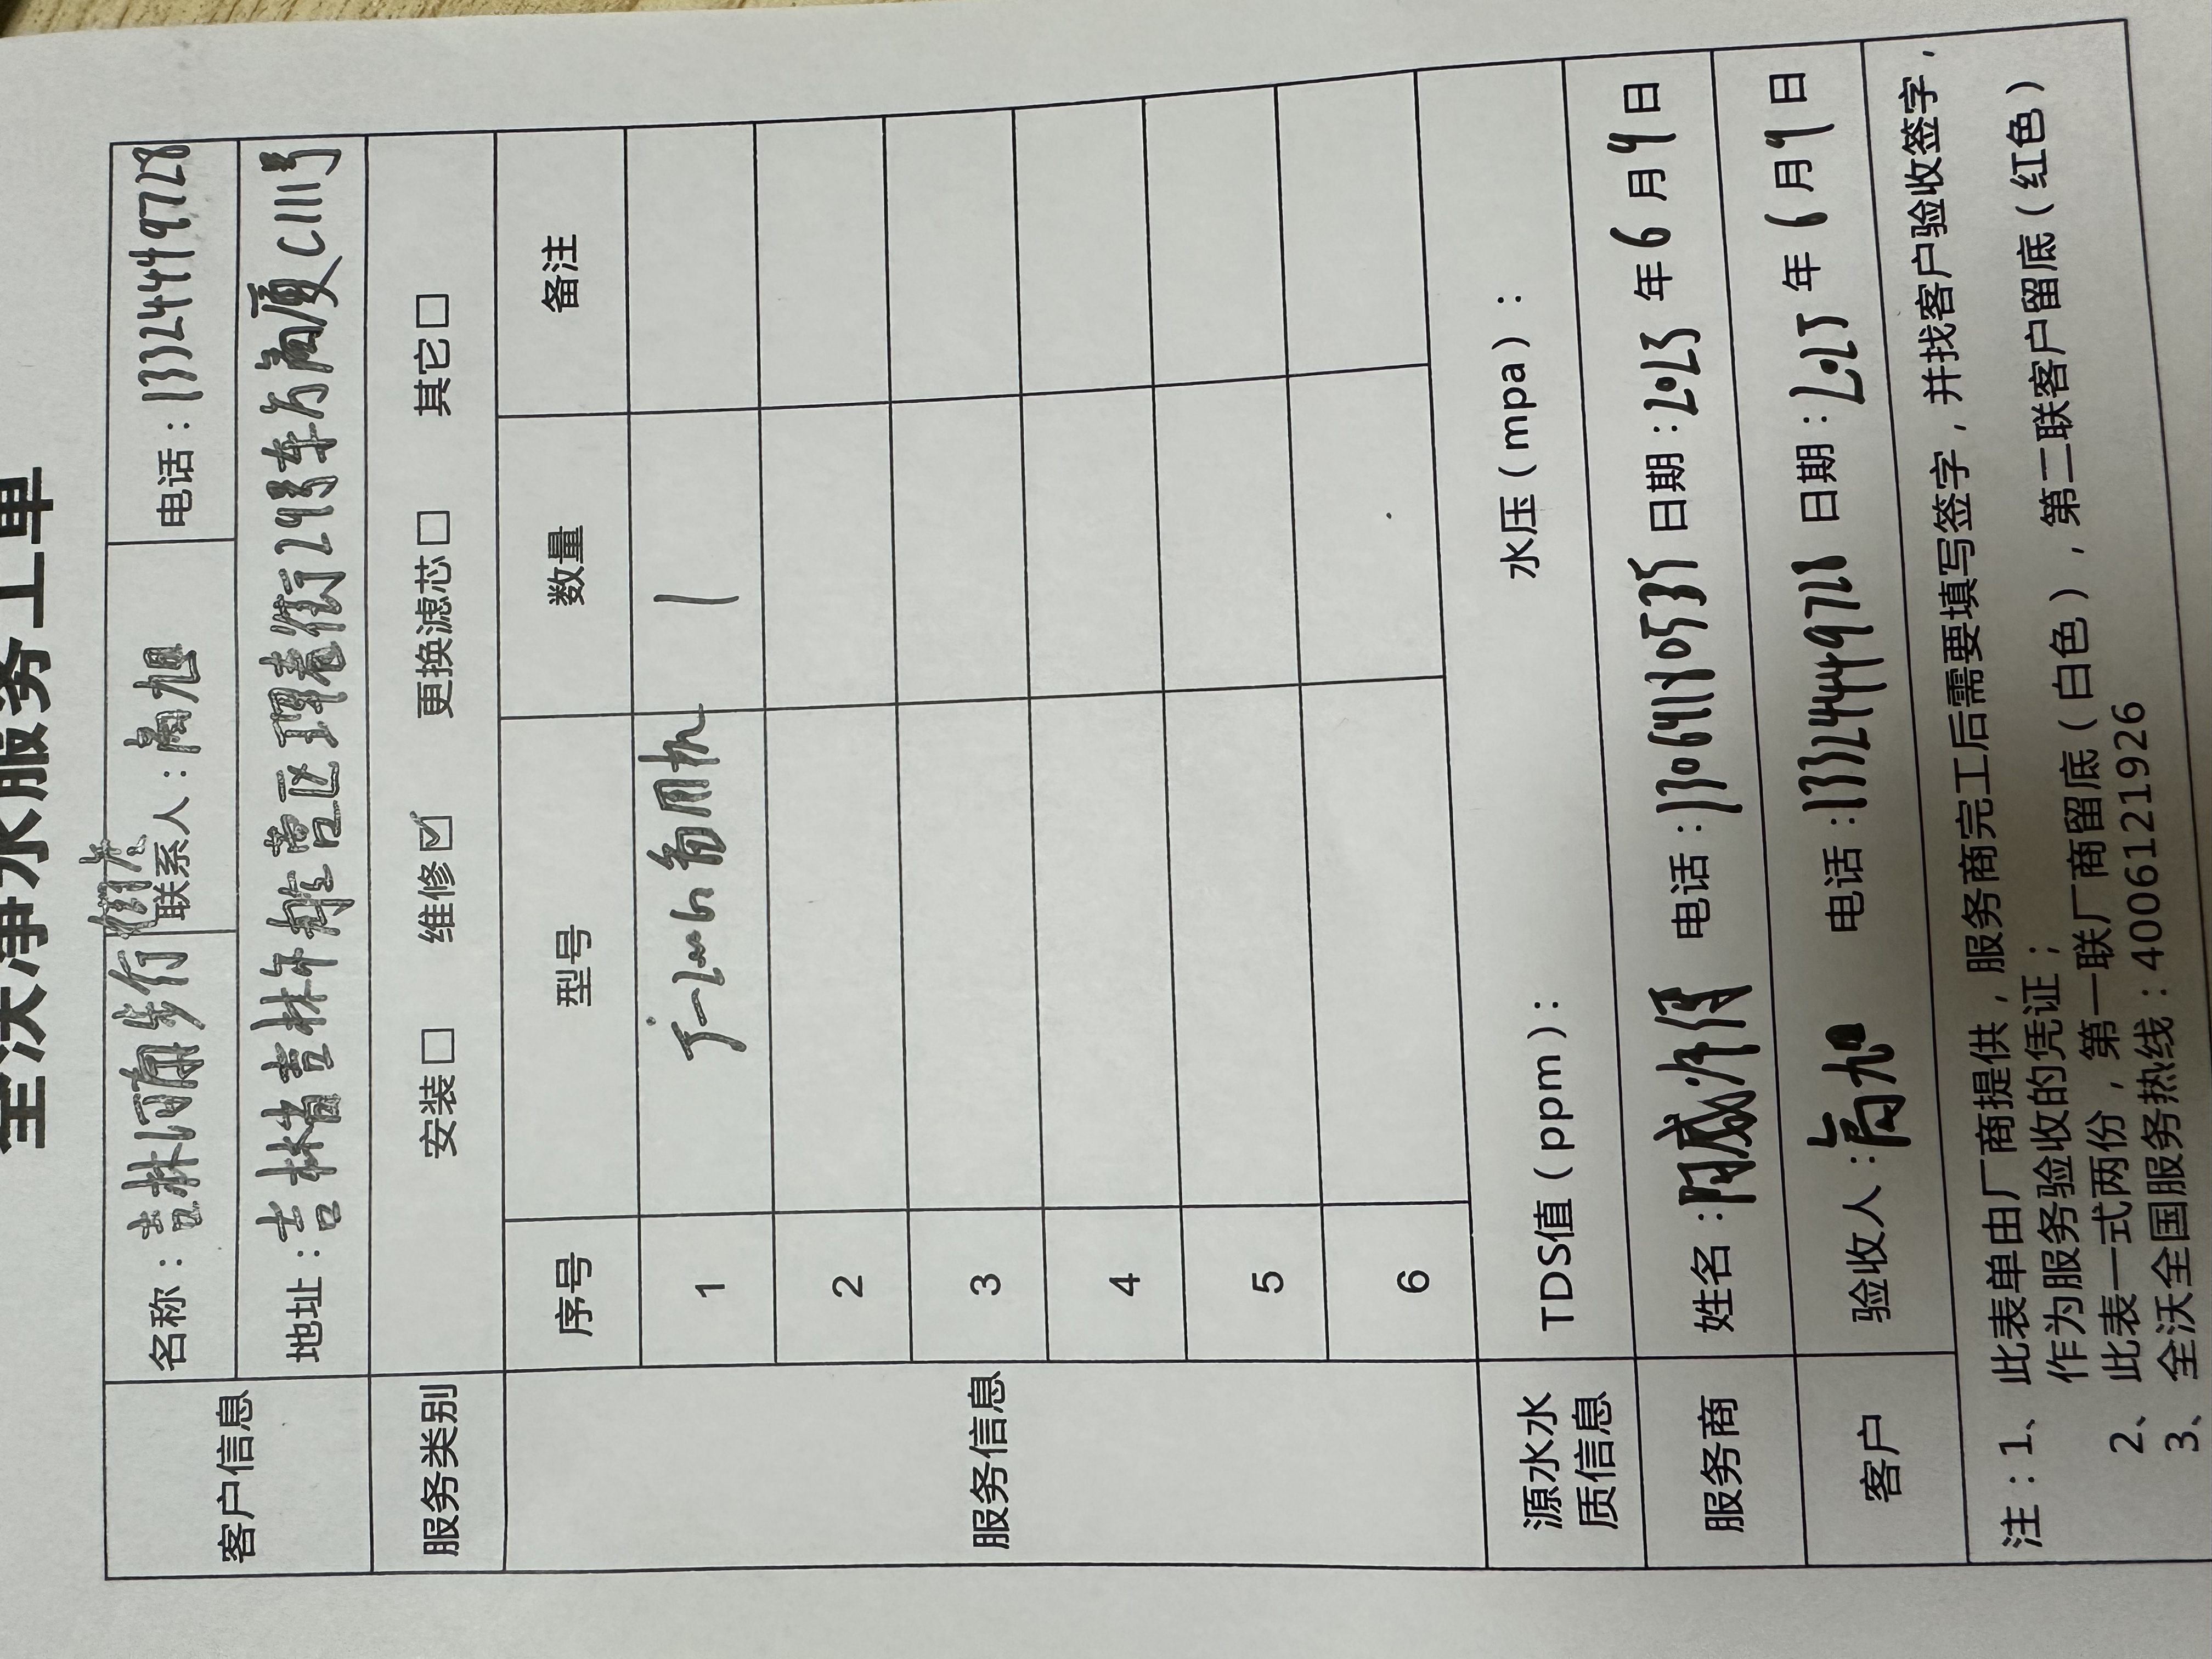 全沃净水服务工单
客户信息
名称：吉林 银行 联系人：高旭 电话：13324449728
地址：吉林省吉林市 营区 街29号东方商厦C111号
服务类别 安装□ 维修☑ 更换滤芯□ 其它□
服务信息
序号 型号 数量 备注
1 商用机 1
2
3
4
5
6
源水水质信息 TDS值（ppm）： 水压（mpa）：
服务商 姓名： 电话： 日期：2023 年 6 月 9 日
客户 验收人：高旭 电话：13324449728 日期：2023 年 6 月 9 日
注：1、此表单由厂商提供，服务商完工后需要填写签字，并找客户验收签字，
作为服务验收的凭证；
2、此表一式两份，第一联厂商留底（白色），第二联客户留底（红色）
3、全沃全国服务热线：4006121926